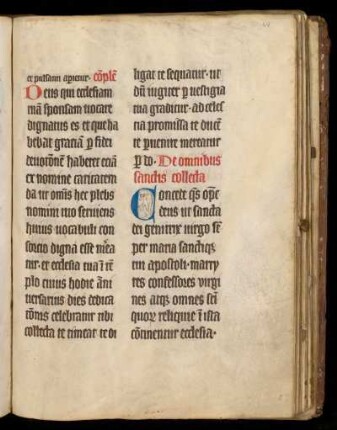 et pulsanti aperietur. cõplẽ
Deus qui ecclesiam
tuã sponsam uocare
dignatus es et que ha
bebat graciã ꝑ fidei
deuocõnẽ haberet eciã
ex nomine caritatem
da ut oĩis hec plebs
nomini tuo seruiens
huius uocabuli con
sorcio digna esse mẽa
tur. et ecclesia tua ĩ tẽ
plo cuius hodie ãni
uersarius dies dedica
cõnis celebratur tibi
collecta te timeat te di
ligat te sequatur. ut
dũ iugiter ꝑ uestigia
tua graditur. ad celes
tia promissa te ducẽ
te ꝑuenire mereatur
ꝑ do. De omnibus
sanctis collecta
Concede q̃s om̃ps
deus ut sancta
dei genitrix uirgo sẽ
per maria sanctiq;
tui apostoli. marty
res confessores uirgi
nes atq; omnes scĩ
quoꝝ reliquie ĩ ista
cõtinentur ecclesia.